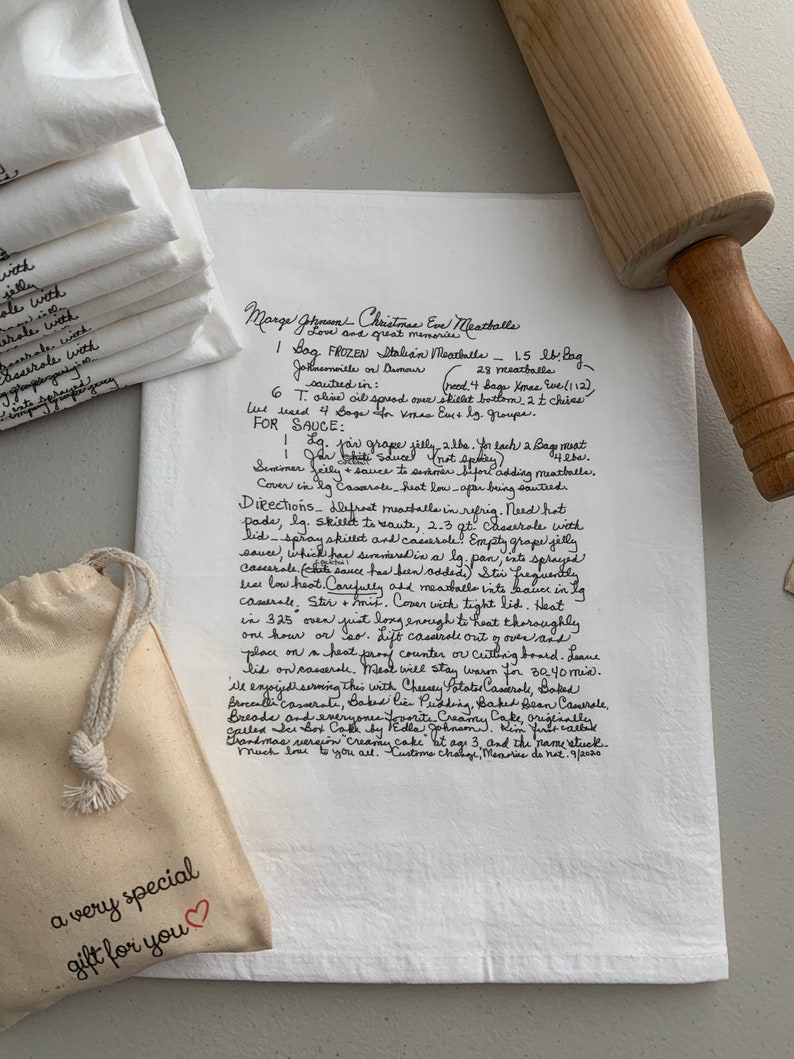 Marge Johnson - Christmas Eve Meatballs
Love and great memories
1 Bag FROZEN Italian Meatballs - 1.5 lb. Bag
Johnsonville or Armour (28 meatballs
sautéed in: (need 4 Bags Xmas Eve (112)
6 T. olive oil spread over skillet bottom 2 t chives
We used 4 Bags for Xmas Eve + lg. groups.
FOR SAUCE:
1 Lg. jar grape jelly - 2 lbs. for each 2 Bags meat
1 Jar cocktail sauce (not spicy) 4 lbs.
Simmer jelly + sauce to simmer before adding meatballs.
Cover in lg casserole - heat low - after being sautéed.
Directions - Defrost meatballs in refrig. Need hot
pads, lg. skillet to sauté, 2-3 qt. casserole with
lid - spray skillet and casserole. Empty grape jelly
sauce, which has simmered in a lg. pan, into sprayed
casserole. (cocktail sauce has been added) Stir frequently
use low heat. Carefully add meatballs into sauce in lg
casserole. Stir + mix. Cover with tight lid. Heat
in 325 oven just long enough to heat thoroughly
one hour or so. Lift casserole out of oven and
place on a heat proof counter or cutting board. Leave
lid on casserole. Meat will stay warm for 30-40 min.
We enjoyed serving this with Cheesy Potato Casserole, Baked
Broccoli casserole, Baked Rice Pudding, Baked Bean Casserole,
Breads and everyones favorite Creamy Cake, originally
called Ice Box Cake by Edla Johnson. Kim first called
Grandmas version "creamy cake" at age 3, and the name stuck.
Much love to you all. Customs change, Memories do not. 9/2020
a very special
gift for you